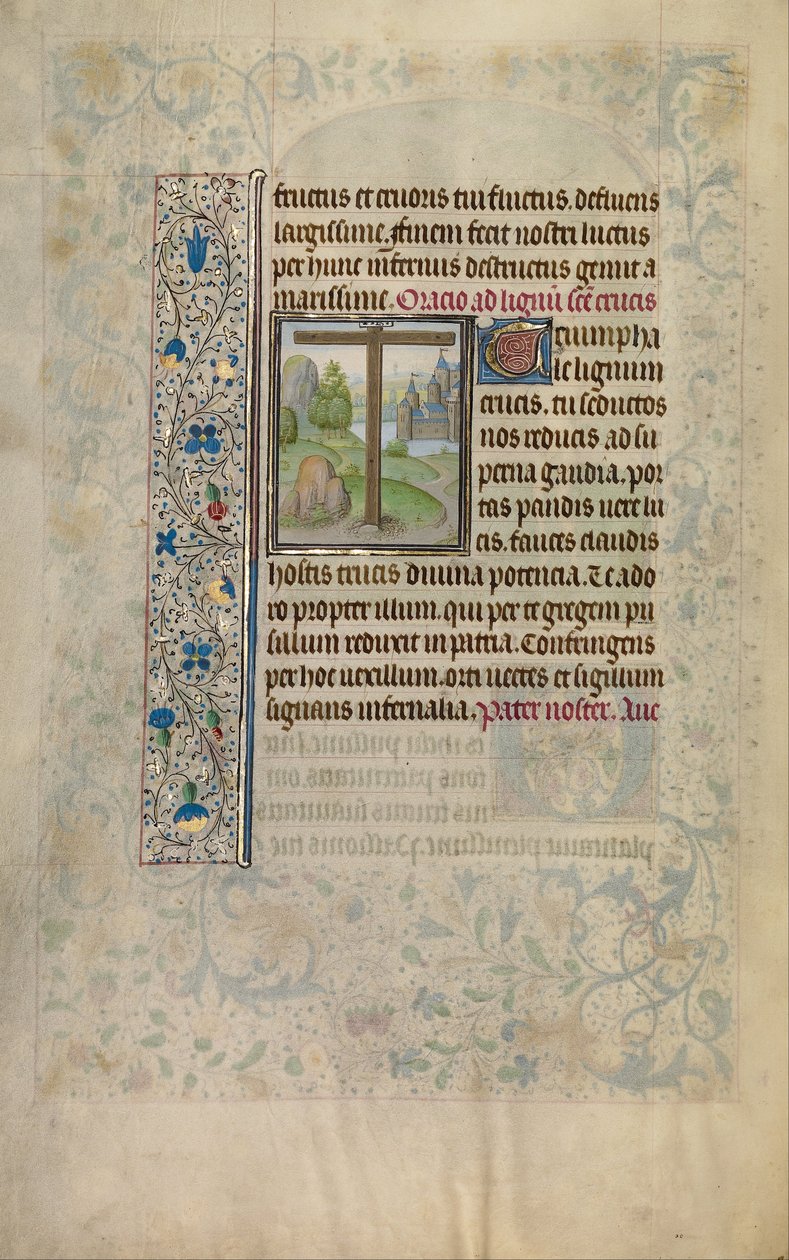 fructus et cruoris tui fluctus. defluens
largissime. Finem fecit nostri luctus
per hunc infernus destructus gemit a
marissime. Oracio ad lignū scē crucis
Triumpha
le lignum
crucis. tu seductos
nos reducis ad su
perna gaudia. por
tas pandis vere lu
cis. fauces claudis
hostis trucis divina potencia. Te ado
ro propter illum. qui per te gregem pu
sillum reduxit in patria. Confringens
per hoc vexillum. orti vectes et sigillum
signans infernalia. Pater noster. Ave